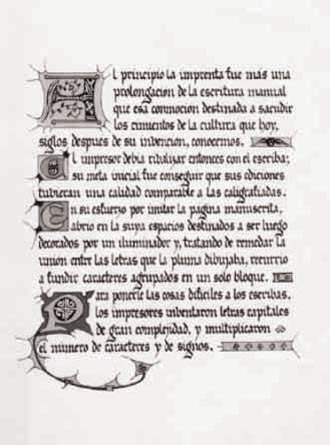 Al principio la imprenta fue más una
prolongación de la escritura manual
que esa conmoción destinada a sacudir
los cimientos de la cultura que hoy,
siglos después de su invención, conocemos.
El impresor debía rivalizar entonces con el escriba;
su meta inicial fue conseguir que sus ediciones
tubieran una calidad comparable a las caligrafiadas.
En su esfuerzo por imitar la página manuscrita,
abrió en la suya espacios destinados a ser luego
decorados por un iluminador y, tratando de remedar la
unión entre las letras que la pluma dibujaba, recurrió
a fundir caracteres agrupados en un solo bloque.
Para ponerle las cosas difíciles a los escribas,
los impresores inventaron letras capitales
de gran complejidad, y multiplicaron
el número de caracteres y de signos.